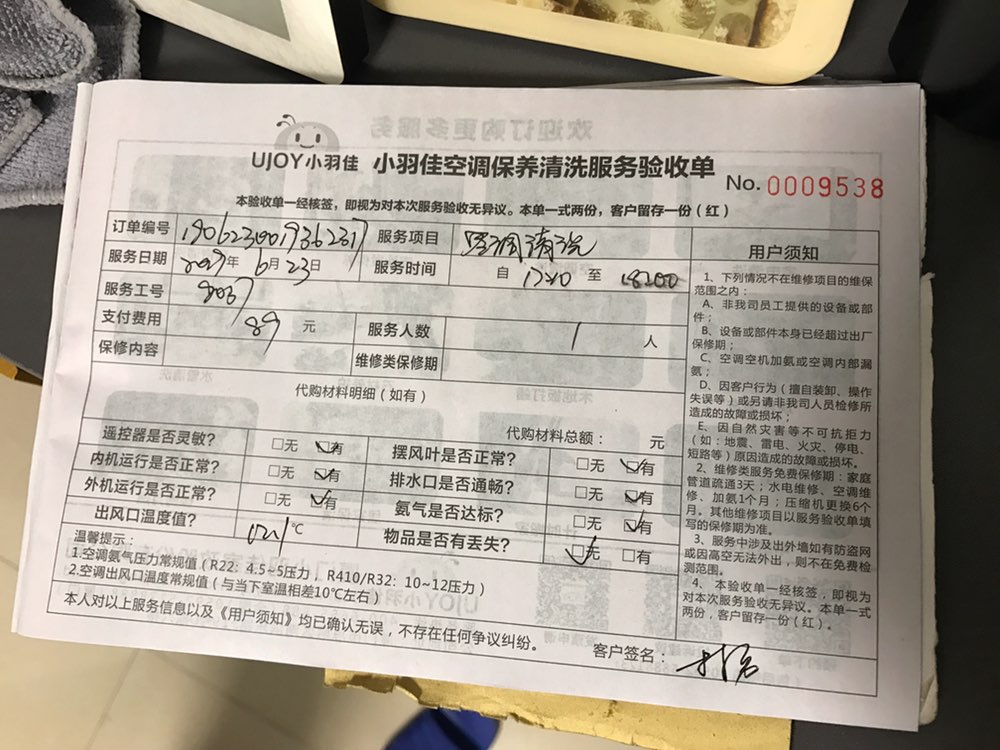 UJOY小羽佳 小羽佳空调保养清洗服务验收单 No. 0009538
本验收单一经核签，即视为对本次服务验收无异议。本单一式两份，客户留存一份（红）
订单编号 服务项目 空调清洗
服务日期 2019年 6月 23日 服务时间 自 17:20 至
服务工号
支付费用 89 元 服务人数 1 人
保修内容 维修类保修期
代购材料明细（如有）
代购材料总额： 元
遥控器是否灵敏？ □无 ☑有 摆风叶是否正常？ □无 ☑有
内机运行是否正常？ □无 ☑有 排水口是否通畅？ □无 ☑有
外机运行是否正常？ □无 ☑有 氨气是否达标？ □无 ☑有
出风口温度值？ ℃ 物品是否有丢失？ ☑无 □有
温馨提示：
1.空调氨气压力常规值（R22：4.5~5压力，R410/R32：10~12压力）
2.空调出风口温度常规值（与当下室温相差10℃左右）
本人对以上服务信息以及《用户须知》均已确认无误，不存在任何争议纠纷。
客户签名：
用户须知
1、下列情况不在维修项目的维保
范围之内：
A、非我司员工提供的设备或部
件；
B、设备或部件本身已经超过出厂
保修期；
C、空调空机加氨或空调内部漏
氨；
D、因客户行为（擅自装卸、操作
失误等）或另请非我司人员检修所
造成的故障或损坏；
E、因自然灾害等不可抗拒力
（如：地震、雷电、火灾、停电、
短路等）原因造成的故障或损坏。
2、维修类服务免费保修期：家庭
管道疏通3天；水电维修、空调维
修、加氨1个月；压缩机更换6个
月。其他维修项目以服务验收单填
写的保修期为准。
3、服务中涉及出外墙如有防盗网
或因高空无法外出，则不在免费检
测范围。
4、本验收单一经核签，即视为
对本次服务验收无异议。本单一式
两份，客户留存一份（红）。